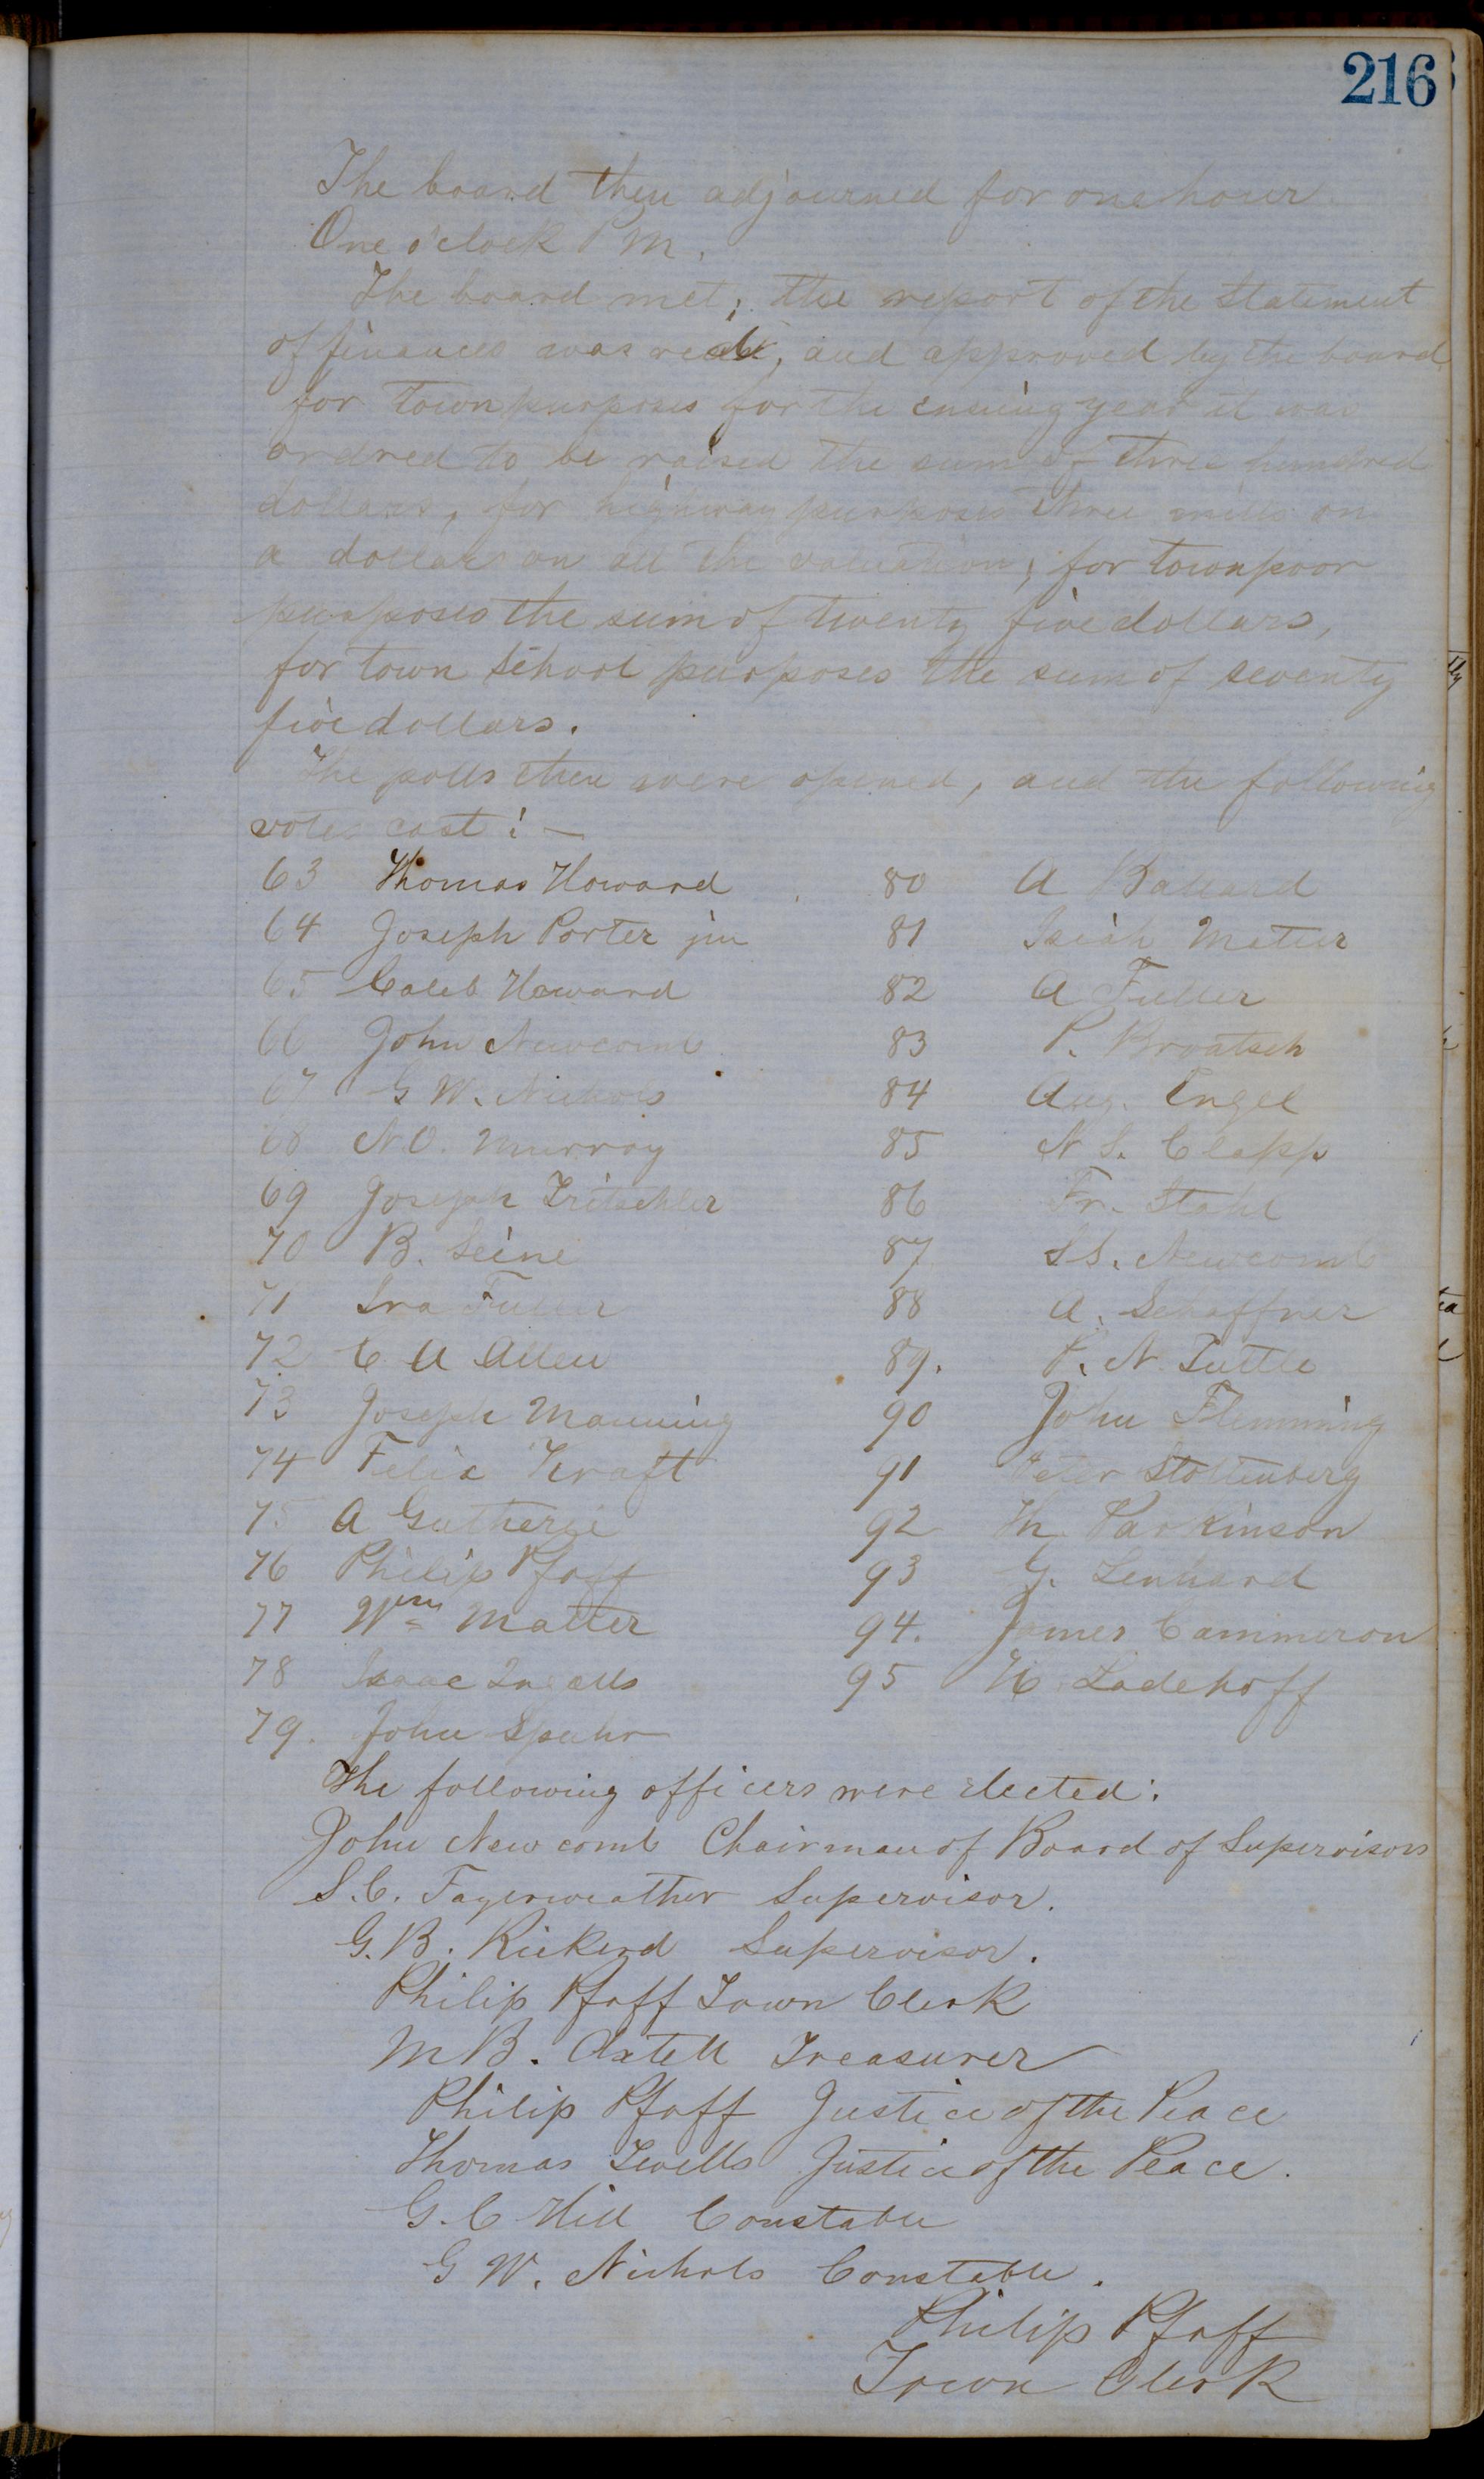 216
The board then adjourned for one hour.
One o'clock P M.
The board met; the report of the Statement
of finances was read, and approved by the board
for town purposes for the ensuing year it was
ordred to be raised the sum of three hundred
dollars, for highway purposes three mills on
a dollar on all the valuation; for town poor
purposes the sum of twenty five dollars,
for town School purposes the sum of seventy
five dollars.
The polls then were opened, and the following
votes cast: —
63 Thomas Howard 80 A Ballard
64 Joseph Porter jun 81 Isiah Matter
65 Caleb Howard 82 A Fuller
66 John Newcomb 83 P. Broatsch
67 G W. Nichols 84 Aug. Engel
68 N O. Murray 85 N S. Clapp
69 Joseph Tritschler 86 Fr. Stahl
70 B. Seine 87 S S. Newcomb
71 Ira Fuller 88 A. Schaffner
72 C A Allen 89. P. N Tuttle
73 Joseph Manning 90 John Flemming
74 Felix Kraft 91 Peter Stoltenberg
75 A Gutherie 92 Th Parkinson
76 Philip Pfaff 93 G. Lenhard
77 Wm Matter 94. James Cammeron
78 Isaac Ingalls 95 H Ladehoff
79. John Spuhr
The following officers were elected:
John Newcomb Chairman of Board of Supervisors
S. C. Fayerweather Supervisor.
G. B. Rickerd Supervisor.
Philip Pfaff Town Clerk
M B. Axtell Treasurer
Philip Pfaff Justice of the Peace
Thomas Lewells Justice of the Peace.
G. C Hill Constable
G W. Nichols Constable.
Philip Pfaff
Town Clerk